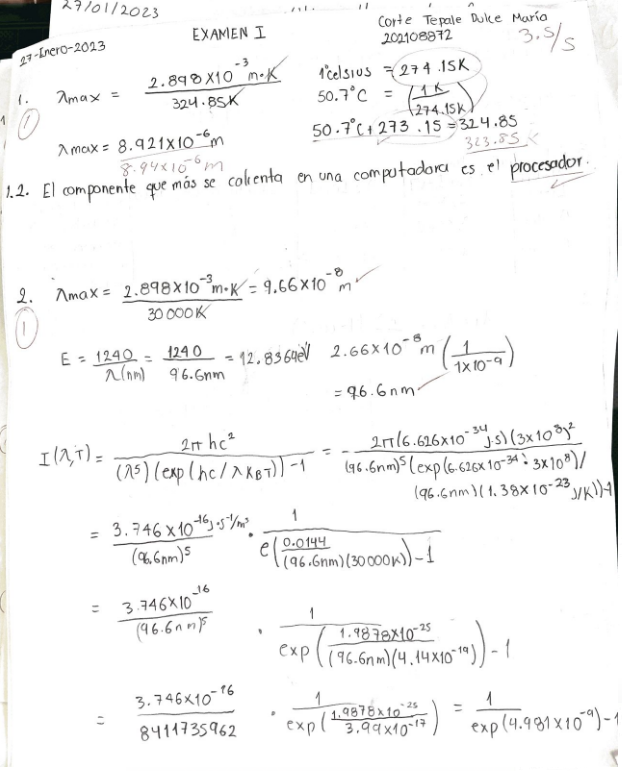 27/01/2023
27-Enero-2023
EXAMEN I
Corte Tepale Dulce María
202108872
3.5/5
1. λmax = 2.898x10^-3 m·K / 324.85K
1°celsius = 274.15K
50.7°C = (1K / 274.15K)
50.7°C + 273.15 = 324.85
323.85 K
1
λmax = 8.921x10^-6 m
8.94x10^-6 m
1.2. El componente que más se calienta en una computadora es el procesador.
2. λmax = 2.898x10^-3 m·K / 30000K = 9.66x10^-8 m
1
E = 1240 / λ(nm) = 1240 / 96.6nm = 12.8364eV
2.66x10^-8 m (1 / 1x10^-9)
= 96.6nm
I(λ,T) = 2π hc^2 / (λ^5)(exp(hc/λKBT))-1 = - 2π(6.626x10^-34 J·s)(3x10^8)^2 / (96.6nm)^5 (exp(6.626x10^-34 · 3x10^8)/
(96.6nm)(1.38x10^-23 J/K))-1
= 3.746x10^-16 J·s^-1/m^5 / (96.6nm)^5 · 1 / e(0.0144 / (96.6nm)(30000K))-1
= 3.746x10^-16 / (96.6nm)^5 · 1 / exp(1.9878x10^-25 / (96.6nm)(4.14x10^-19))-1
= 3.746x10^-16 / 8411735962 · 1 / exp(1.9878x10^-25 / 3.99x10^-17) = 1 / exp(4.981x10^-9)-1